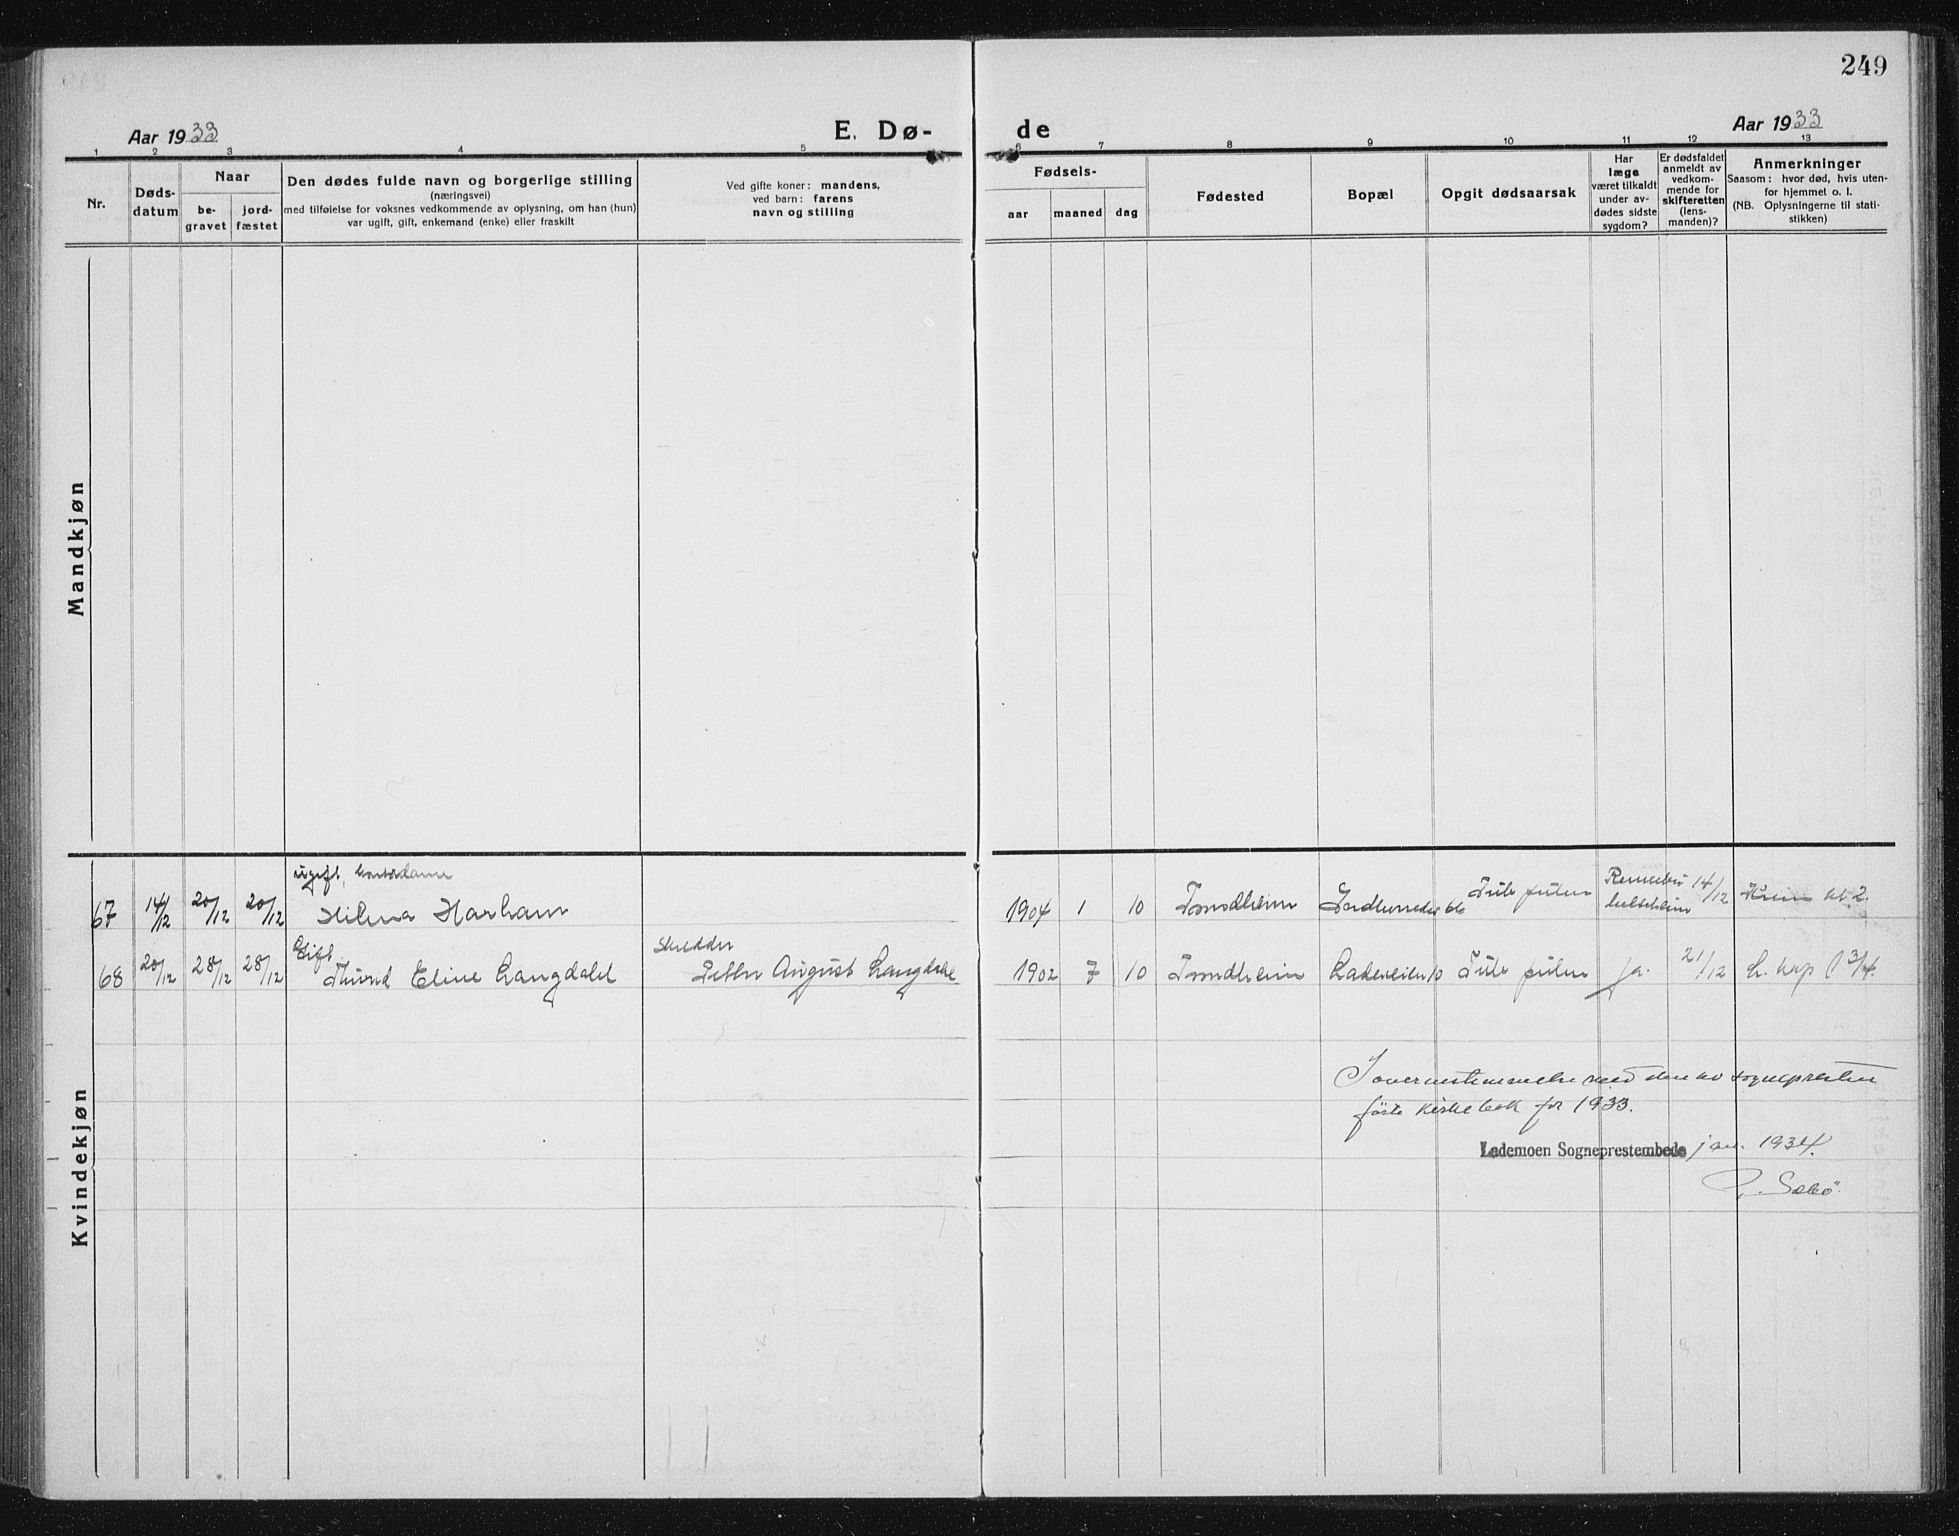 249
Aar 1933
E. Dø-
de
Aar 1933
1 2 3 4 5 6 7 8 9 10 11 12 13
Nr.
Døds-
datum
Naar
be-
gravet
jord-
fæstet
Den dødes fulde navn og borgerlige stilling
(næringsvei)
med tilføielse for voksnes vedkommende av oplysning, om han (hun)
var ugift, gift, enkemand (enke) eller fraskilt
Ved gifte koner: mandens,
ved barn: farens
navn og stilling
Fødsels-
aar maaned dag
Fødested
Bopæl
Opgit dødsaarsak
Har
læge
været tilkaldt
under av-
dødes sidste
sygdom?
Er dødsfaldet
anmeldt av
vedkom-
mende for
skifteretten
(lens-
manden)?
Anmerkninger
Saasom: hvor død, hvis uten-
for hjemmet o. l.
(NB. Oplysningerne til stati-
stikken)
Mandkjøn
ugift,
67 14/12 20/12 20/12 Hilma Harhaug 1904 1 10 Trondheim 66 Tub. pulm 14/12
Gift Skredder
68 20/12 28/12 28/12 Thurid Eline Langdahl August Langdahl 1902 7 10 Trondheim Ladeveien 10 Tub. pulm ja. 21/12 L. kap 3/4.
Kvindekjøn
I overensstemmelse med den av sognepresten
førte kirkebok for 1933.
Lademoen Sogneprestembede jan. 1934.
Sæbö.